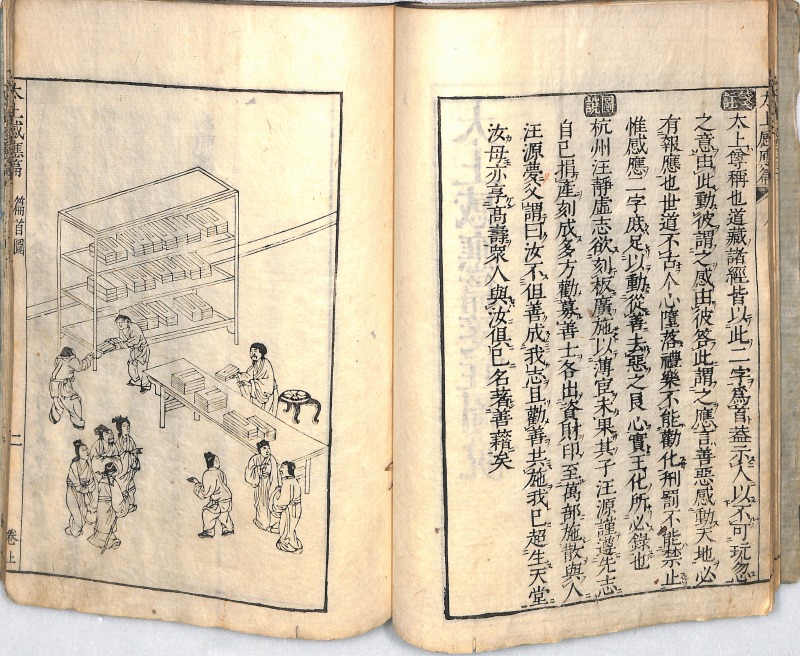 太上感應篇
箋註
太上尊稱也道藏諸經皆以此二字爲首葢示人以不可玩忽
之意由此動彼謂之感由彼答此謂之應言善惡感動天地必
有報應也世道不古人心墮落禮樂不能勸化刑罰不能禁止
惟感應二字庶足以動從善去惡之良心實王化所必錄也
圖說
杭州汪靜虛志欲刻板廣施以薄宦未果其子汪源謹遵先志
自已捐產刻成多方勸募善士各出資財印至萬部施散與人
汪源夢父謂曰汝不但善成我志且勸善共施我已超生天堂
汝母亦享高壽衆人與汝俱已名著善籍矣
太上感應篇 篇首圖 二 卷上